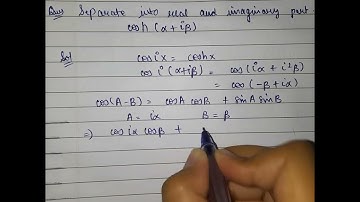 Ques Separate into real and imaginary part
cosh (α + iβ)
Sol cos ix = coshx
cos i (α+iβ) = cos (iα + i²β)
= cos (-β + iα)
cos(A-B) = cosA cosB + sinA sinB
A = ix B = β
⇒ cos ix cosβ +